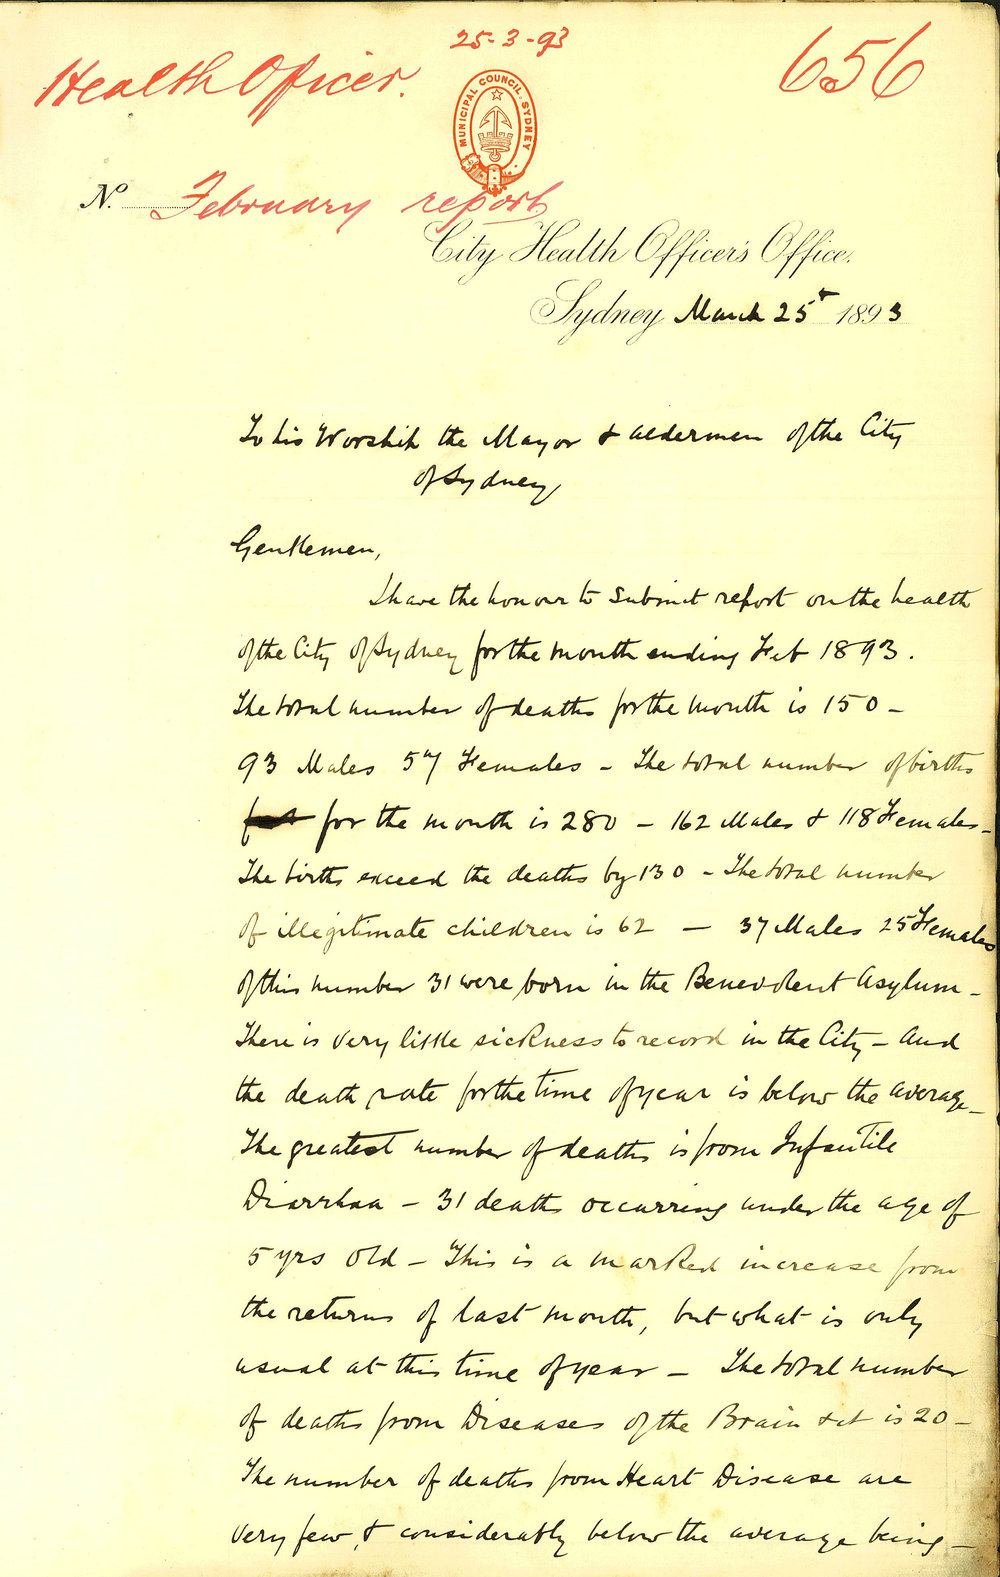 25-3-93
Health Officer.
656
MUNICIPAL COUNCIL. SYDNEY
No. February report
City Health Officer's Office.
Sydney March 25t 1893
To his Worship the Mayor & aldermen of the City
of Sydney
Gentlemen,
I have the honour to submit report on the health
of the City of Sydney for the month ending Feb 1893.
The total number of deaths for the month is 150 -
93 Males 57 Females - The total number of births
for the month is 280 - 162 Males & 118 Females -
The births exceed the deaths by 130 - The total number
of illegitimate children is 62 - 37 Males 25 Females
of this number 31 were born in the Benevolent Asylum -
There is very little sickness to record in the City - And
the death rate for the time of year is below the average -
The greatest number of deaths is from Infantile
Diarrhaa - 31 deaths occurring under the age of
5 yrs old - This is a marked increase from
the returns of last month, but what is only
usual at this time of year - The total number
of deaths from Diseases of the Brain is 20 -
The number of deaths from Heart Disease are
very few, & considerably below the average being -